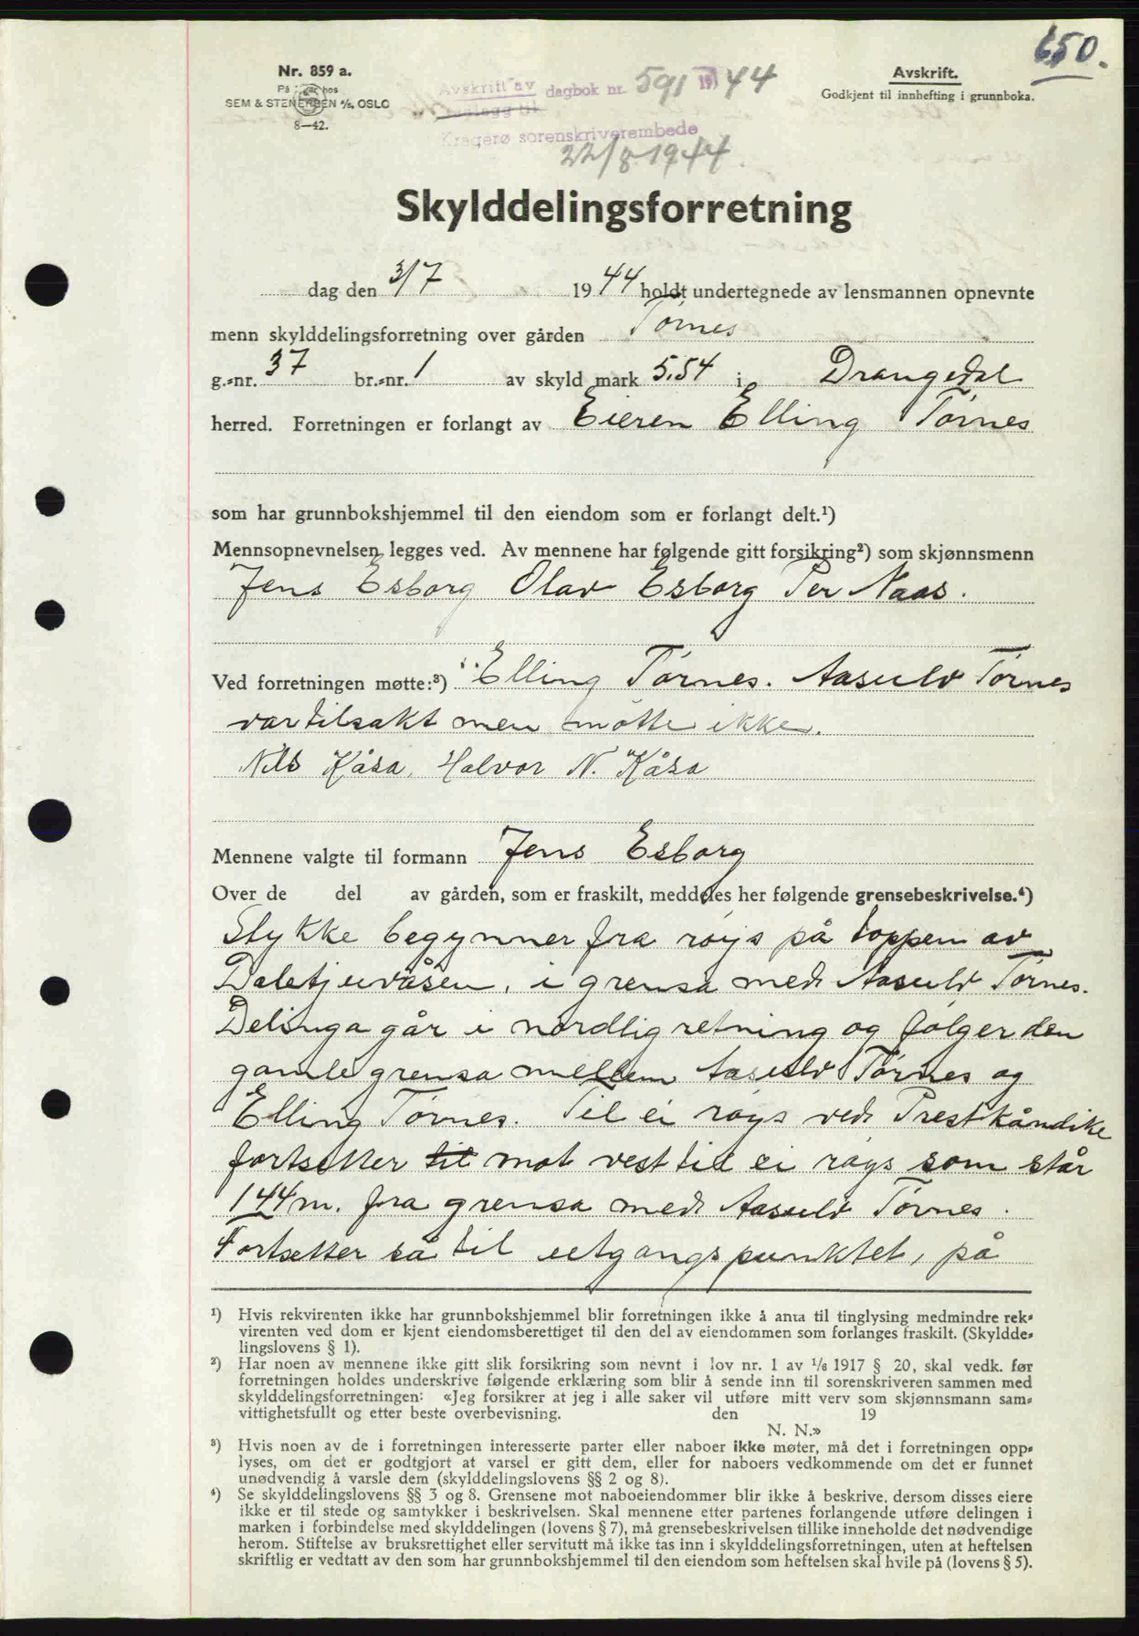 650.
Nr. 859 a.
På lager hos
SEM & STENERSEN A/S, OSLO
8—42.
Avskrift av dagbok nr. 591 1944
Kragerø sorenskriverembede
22/8 1944.
Avskrift.
Godkjent til innhefting i grunnboka.
Skylddelingsforretning
dag den 3/7 1944 holdt undertegnede av lensmannen opnevnte
menn skylddelingsforretning over gården Tørnes
g.-nr. 37 br.-nr. 1 av skyld mark 5.54 i Drangedal
herred. Forretningen er forlangt av Eieren Elling Tørnes
som har grunnbokshjemmel til den eiendom som er forlangt delt.¹)
Mennsopnevnelsen legges ved. Av mennene har følgende gitt forsikring²) som skjønnsmenn
Jens Esborg Olav Esborg Per Naas.
Ved forretningen møtte:³) Elling Tørnes. Aasulv Tørnes
var tilsakt men møtte ikke.
Nils Kåsa, Halvor N. Kåsa
Mennene valgte til formann Jens Esborg
Over de del av gården, som er fraskilt, meddeles her følgende grensebeskrivelse.⁴)
Stykke begynner fra røys på toppen av
Daletjernåsen, i grensa med Aasulv Tørnes.
Delinga går i nordlig retning og følger den
gamle grensa mellem Aasulv Tørnes og
Elling Tørnes. Til ei røys ved Prestkåndike
fortsetter til mot vest til ei røys som står
144 m. fra grensa med Aasulv Tørnes.
Fortsetter så til utgangspunktet, på
¹) Hvis rekvirenten ikke har grunnbokshjemmel blir forretningen ikke å anta til tinglysing medmindre rek-
virenten ved dom er kjent eiendomsberettiget til den del av eiendommen som forlanges fraskilt. (Skyldde-
lingslovens § 1).
²) Har noen av mennene ikke gitt slik forsikring som nevnt i lov nr. 1 av 1/6 1917 § 20, skal vedk. før
forretningen holdes underskrive følgende erklæring som blir å sende inn til sorenskriveren sammen med
skylddelingsforretningen: «Jeg forsikrer at jeg i alle saker vil utføre mitt verv som skjønnsmann sam-
vittighetsfullt og etter beste overbevisning. den 19
N. N.»
³) Hvis noen av de i forretningen interesserte parter eller naboer ikke møter, må det i forretningen opp-
lyses, om det er godtgjort at varsel er gitt dem, eller for naboers vedkommende om det er funnet
unødvendig å varsle dem (skylddelingslovens §§ 2 og 8).
⁴) Se skylddelingslovens §§ 3 og 8. Grensene mot naboeiendommer blir ikke å beskrive, dersom disses eiere
ikke er til stede og samtykker i beskrivelsen. Skal mennene etter partenes forlangende utføre delingen i
marken i forbindelse med skylddelingen (lovens § 7), må grensebeskrivelsen tillike inneholde det nødvendige
herom. Stiftelse av bruksrettighet eller servitutt må ikke tas inn i skylddelingsforretningen, uten at heftelsen
skriftlig er vedtatt av den som har grunnbokshjemmel til den eiendom som heftelsen skal hvile på (lovens § 5).